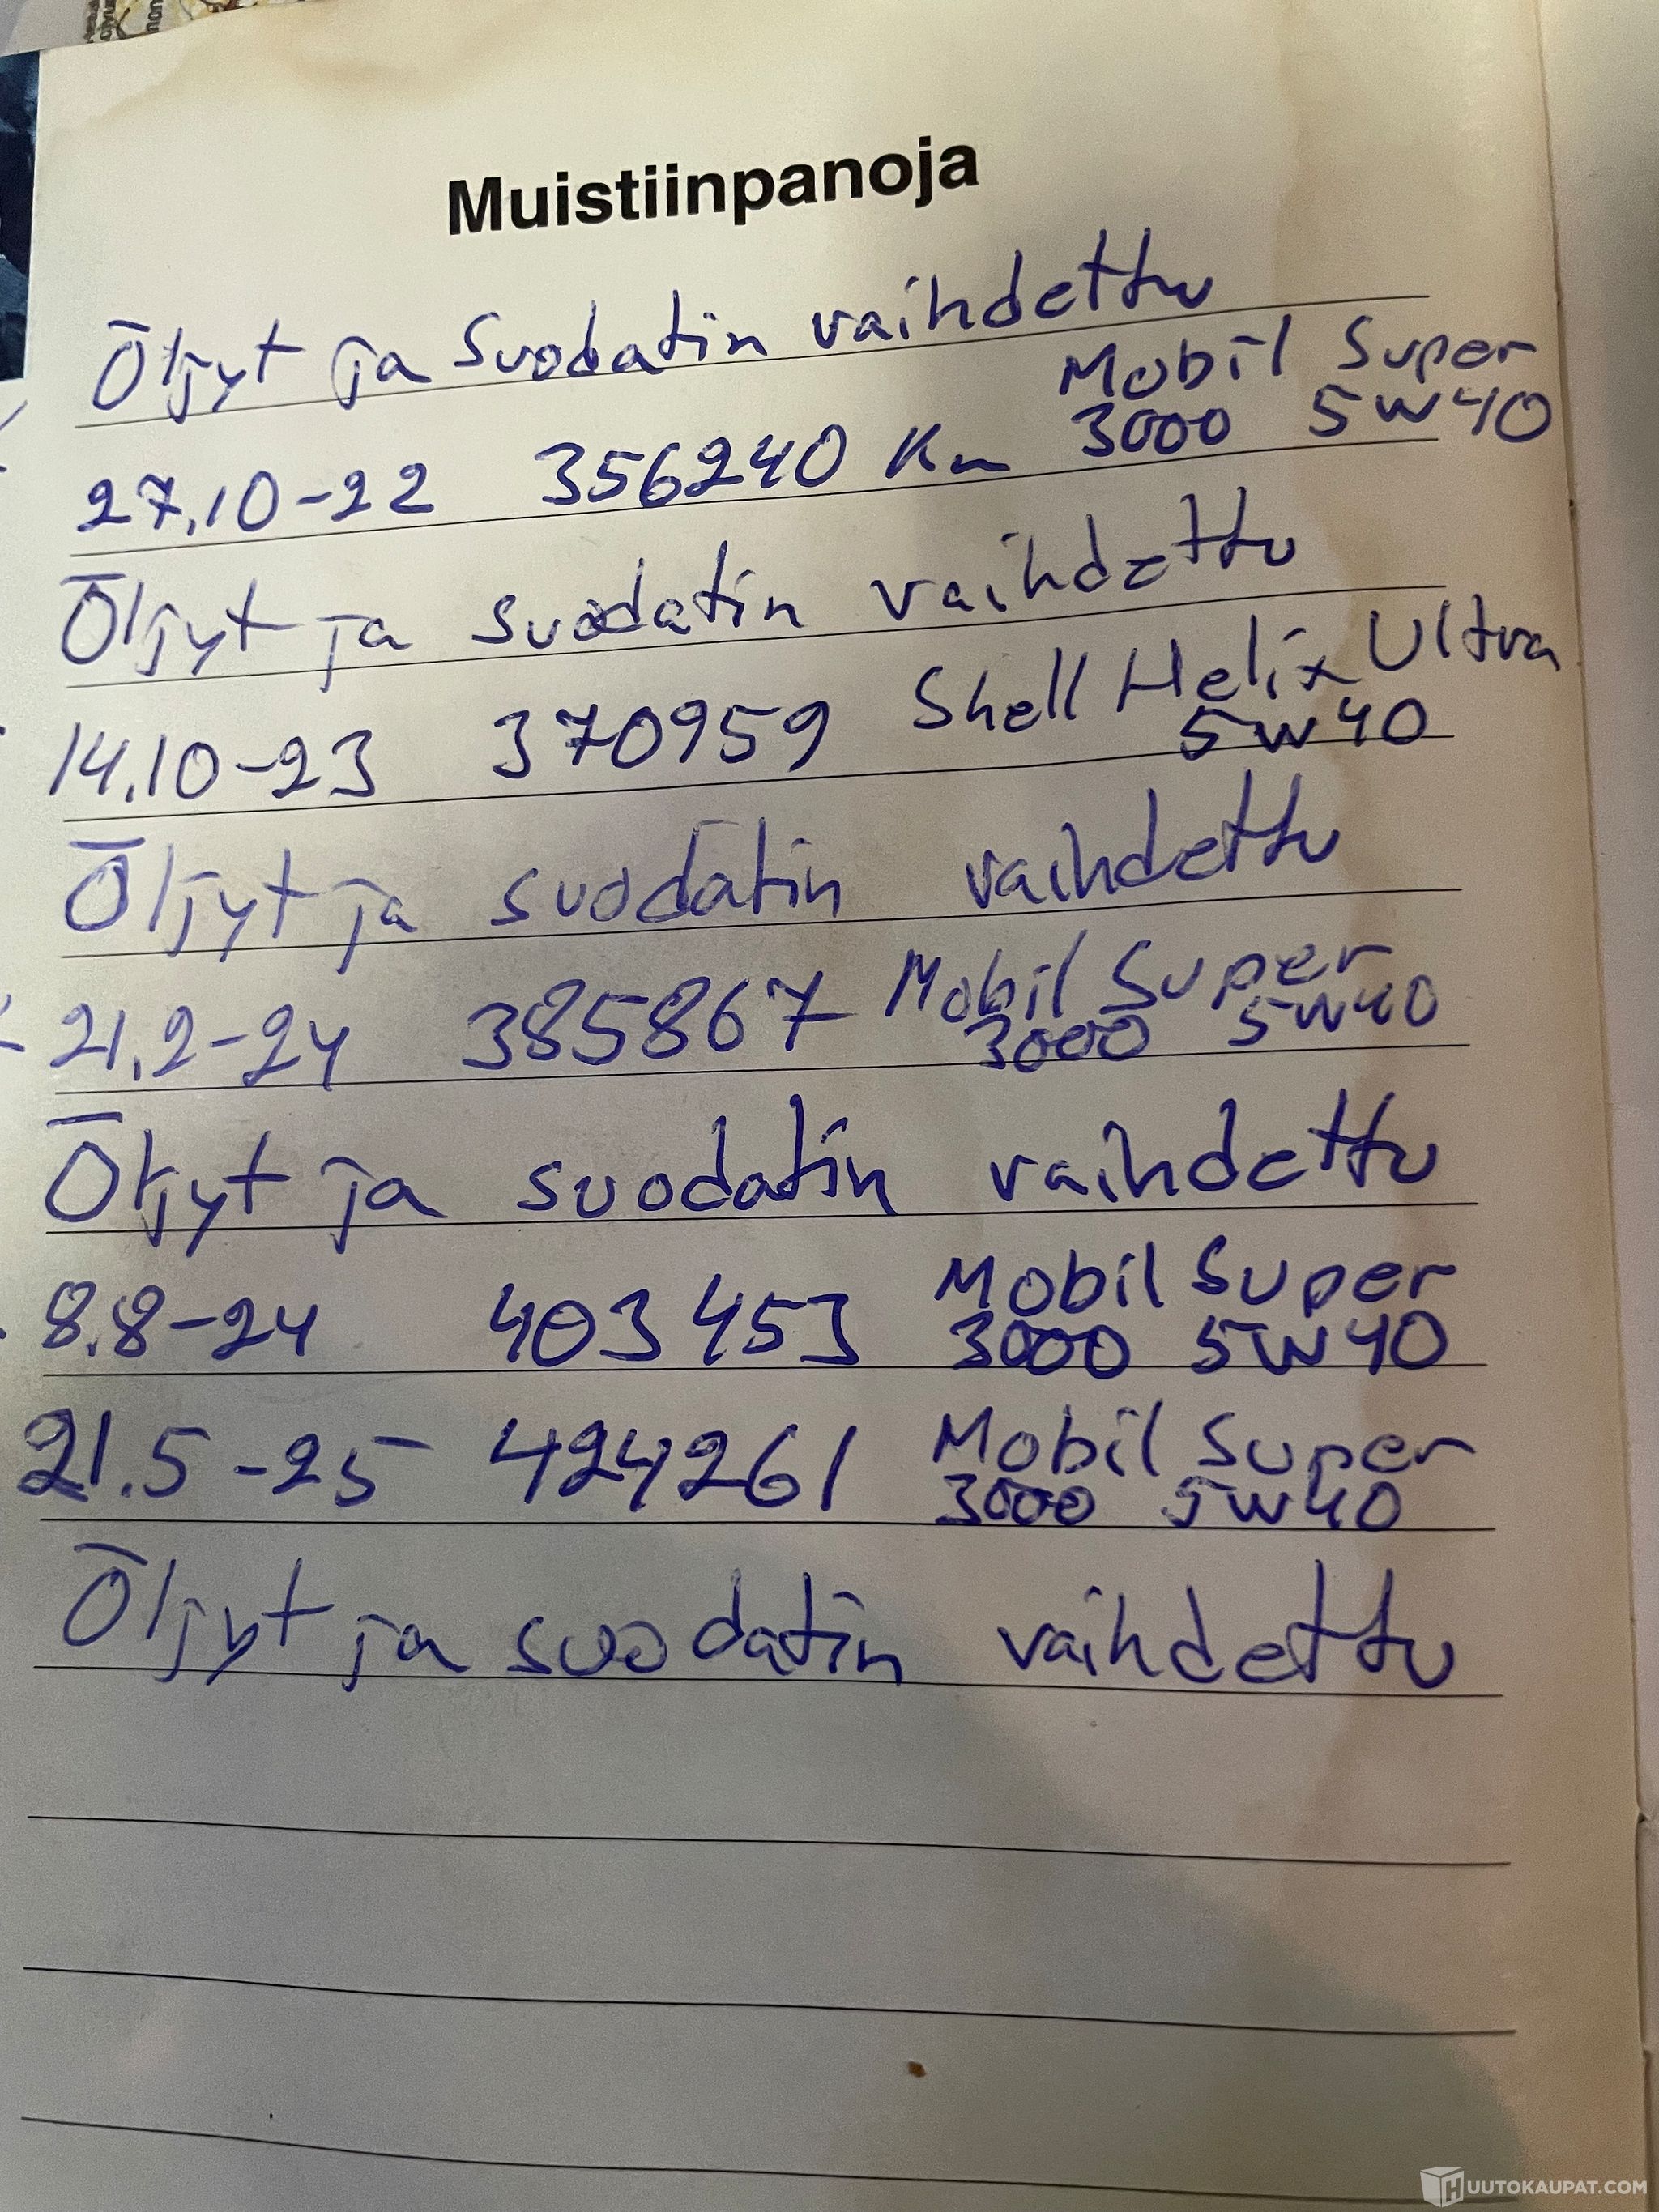 Muistiinpanoja
Öljyt ja suodatin vaihdettu
Mobil Super
27.10-22 356240 Km 3000 5W40
Öljyt ja suodatin vaihdettu
14.10-23 370959 Shell Helix Ultra
5W40
Öljyt ja suodatin vaihdettu
21.2-24 385867 Mobil Super
3000 5W40
Öljyt ja suodatin vaihdettu
8.8-24 403453 Mobil Super
3000 5W40
21.5-25 424261 Mobil Super
3000 5W40
Öljyt ja suodatin vaihdettu
HUUTOKAUPAT.COM